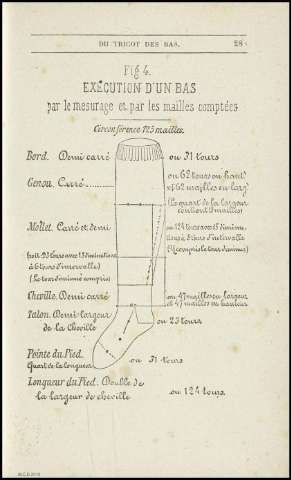 DU TRICOT DES BAS. 28
Fig 4.
EXÉCUTION D'UN BAS
par le mesurage et par les mailles comptées
Circonférence 125 mailles.
Bord. Demi carré ou 31 tours
Genou. Carré ou 62 tours ou haut
et 62 mailles en larg.
(le quart de la largeur
contient mailles)
Mollet. Carré et demi ou 124 tours avec 15 diminu.
tions, 6 tours d'intervalle
(soit 93 tours avec 15 diminutions (y compris le tour diminué)
à 6 tours d'intervalle)
(Le tour diminué compris)
Cheville. Demi carré ou 47 mailles en largeur
et 47 mailles en hauteur
Talon. Demi-largeur ou 23 tours
de la Cheville
Pointe du Pied. ou 31 tours
Quart de la longueur
Longueur du Pied. Double de ou 124 tours
la largeur de cheville